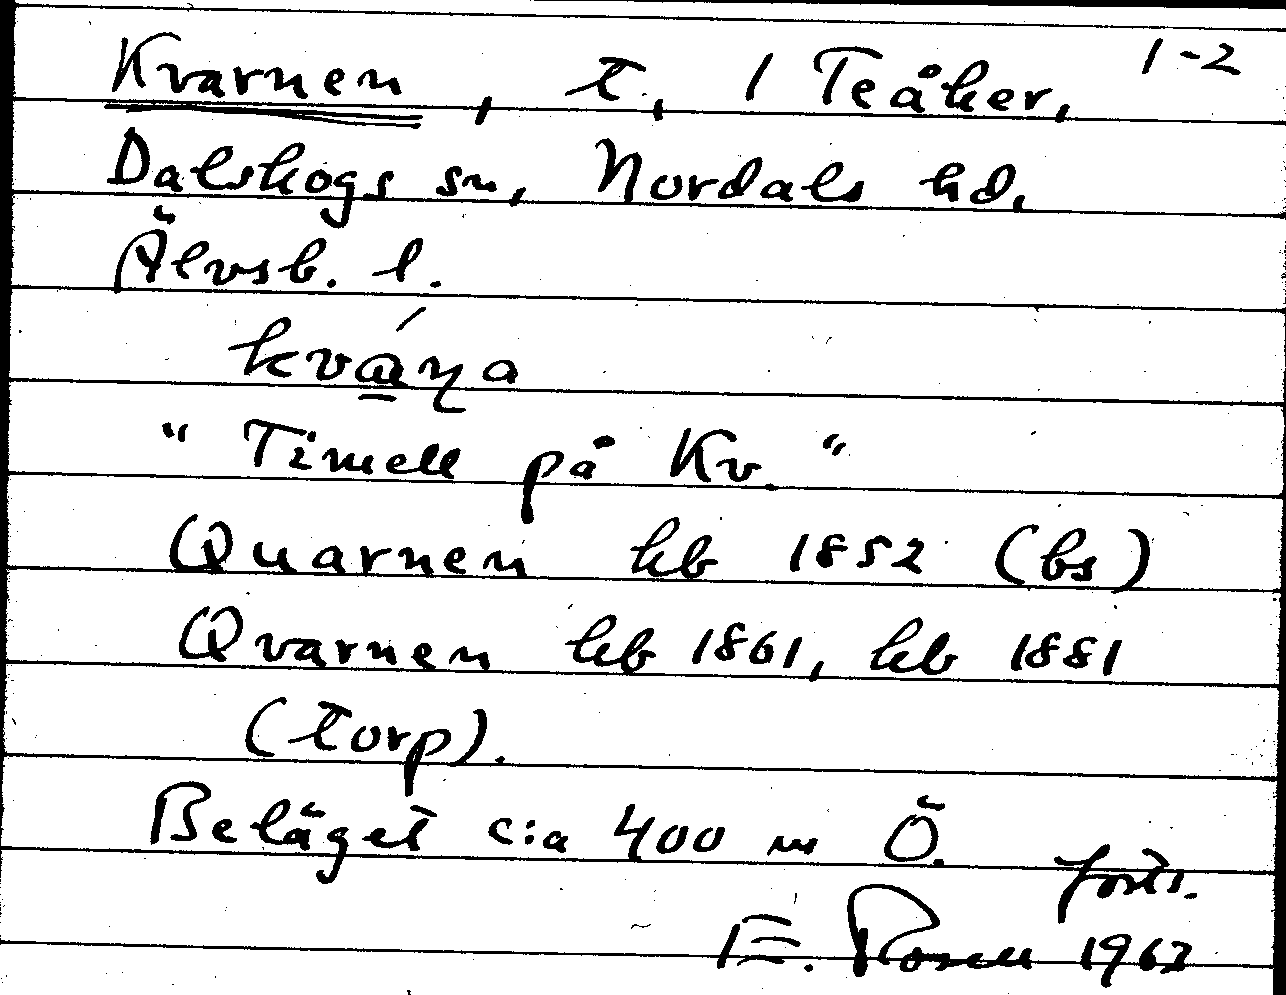 Kvarnen, t, 1 Teåker, 1-2
Dalskogs sn, Nordals hd.
Älvsb. l.
"Timell på Kv."
Quarnen hb 1852 (bs)
Qvarnen hb 1861, hb 1881
(torp).
Beläget c:a 400 m Ö.
forts.
E. Rosell 1963